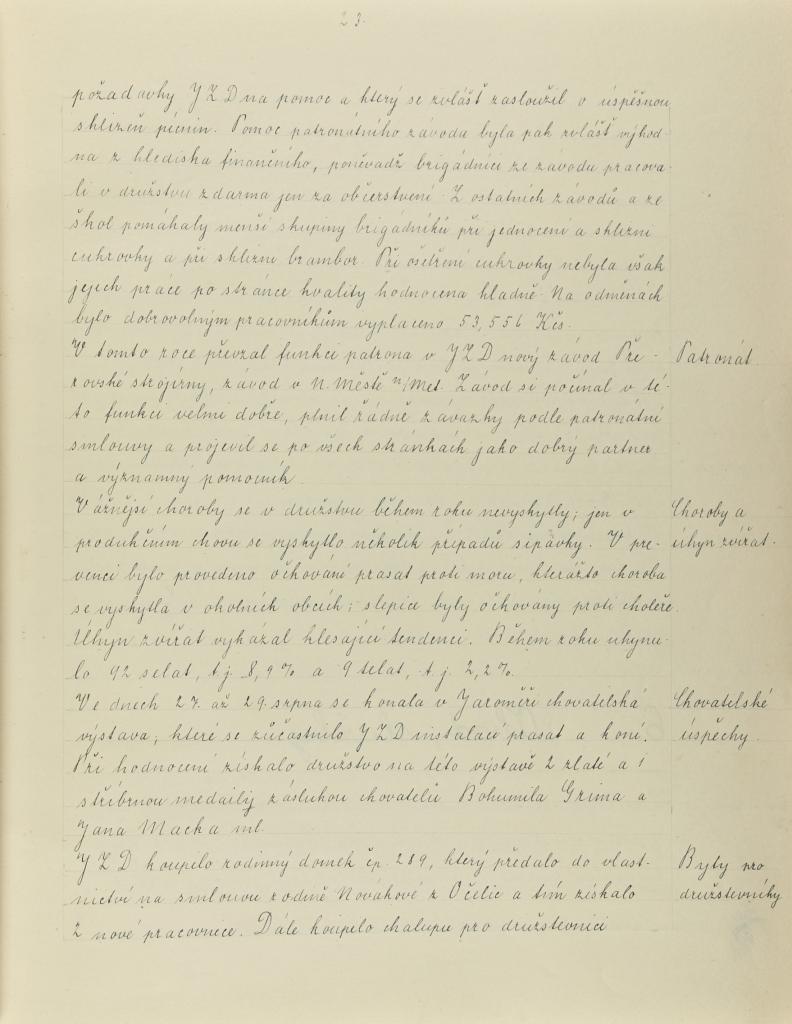 23.
požadavky JZD na pomoc a který se zvlášť zasloužil o úspěšnou
sklizeň pícnin. Pomoc patronátního závodu byla pak zvlášť výhod-
na z hlediska finančního, poněvadž brigádníci ze závodu pracova-
li v družstvu zdarma jen za občerstvení. Z ostatních závodů a ze
škol pomáhaly menší skupiny brigádníků při jednocení a sklizni
cukrovky a při sklizni brambor. Při ošetření cukrovky nebyla však
jejich práce po stránce kvality hodnocena kladně. Na odměnách
bylo dobrovolným pracovníkům vyplaceno 53,556 Kčs.
V tomto roce převzal funkci patrona v JZD nový závod Pře-
rovské strojírny, závod v N. Městě n/Met. Závod si počínal v té-
to funkci velmi dobře, plnil řádně závazky podle patronátní
smlouvy a projevil se po všech stránkách jako dobrý partner
a významný pomocník.
Patronát.
Vážnější choroby se v družstvu během roku nevyskytly; jen v
produkčním chovu se vyskytlo několik případů sípavky. V pre-
venci bylo provedeno očkování prasat proti moru, kterážto choroba
se vyskytla v okolních obcích; slepice byly očkovány proti choleře.
Úhyn zvířat vykázal klesající tendenci. Během roku uhynu-
lo 92 selat, t.j. 8,9% a 9 telat, t.j. 2,2%.
Choroby a
úhyn zvířat.
Ve dnech 27. až 29. srpna se konala v Jaroměři chovatelská
výstava, které se zúčastnilo JZD instalací prasat a koní.
Při hodnocení získalo družstvo na této výstavě 2 zlaté a 1
stříbrnou medaili zásluhou chovatelů Bohumila Gruma a
Jana Macka ml.
Chovatelské
úspěchy.
JZD koupilo rodinný domek čp. 289, který předalo do vlast-
nictví na smlouvu rodině Novákové z Očelic a tím získalo
2 nové pracovnice. Dále koupilo chalupu pro družstevnici
Byty pro
družstevníky